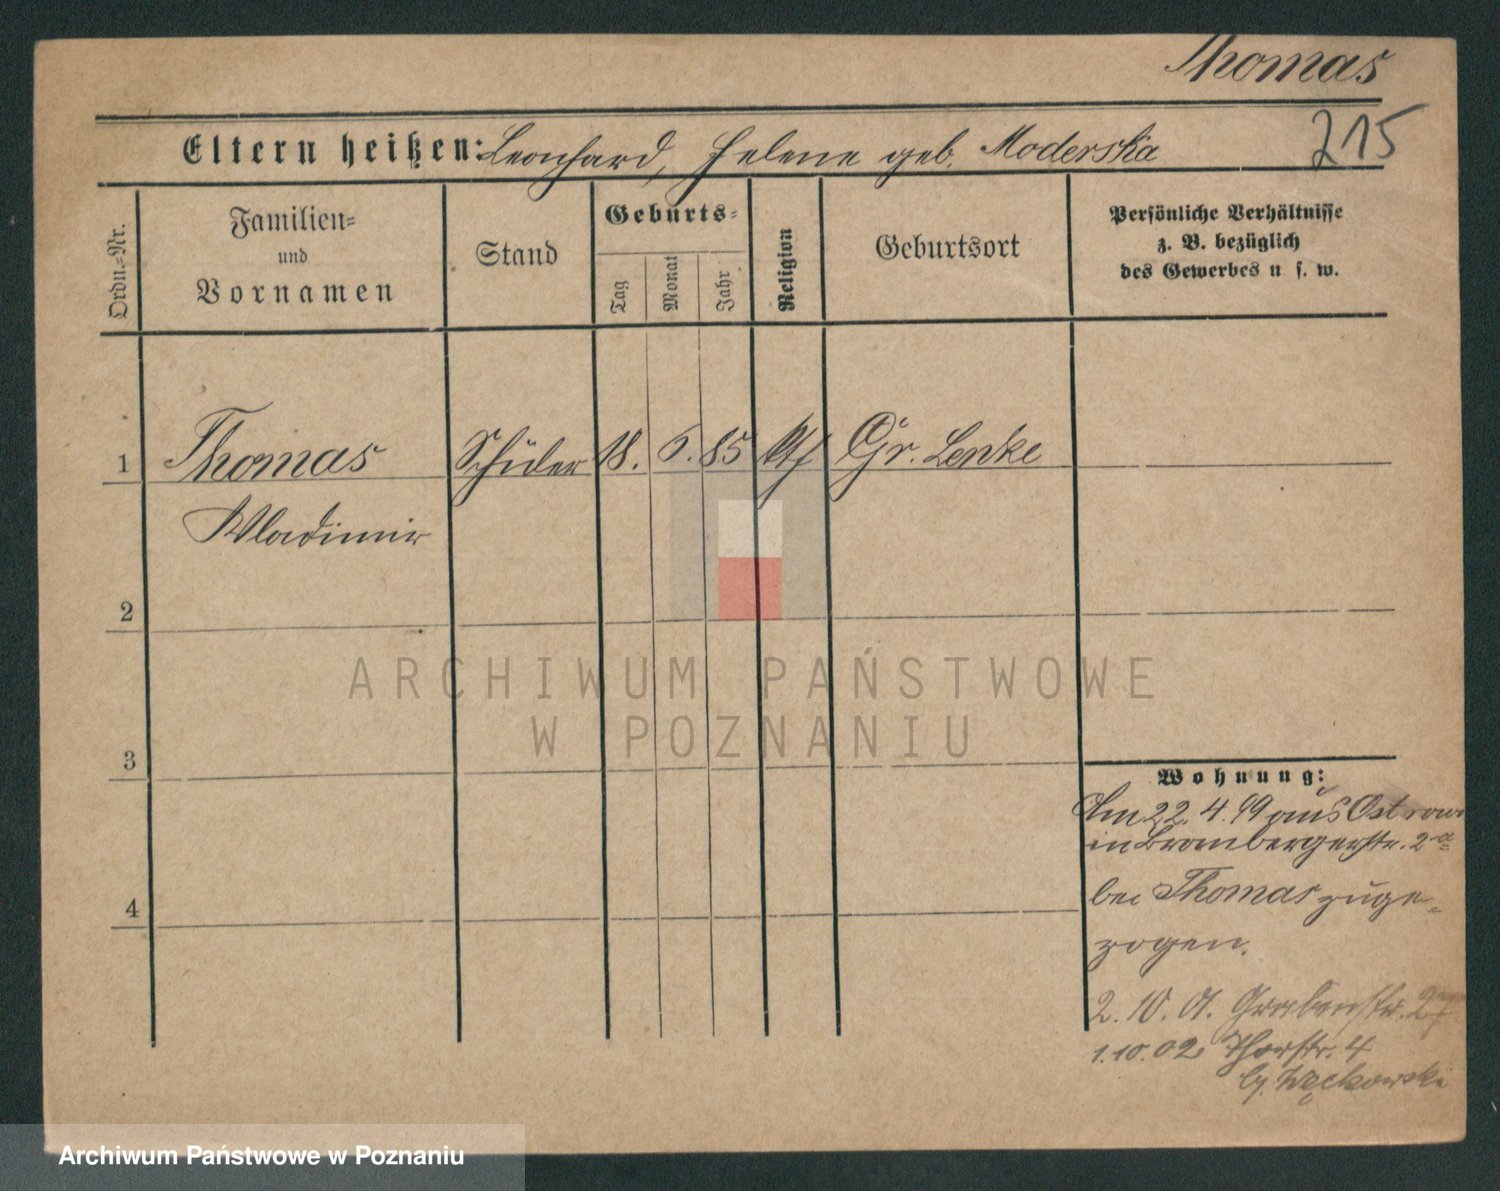 Thomas
215
Eltern heißen: Leonhard, Helene geb. Moderska
Ordn.-Nr.
Familien-
und
Vornamen
Stand
Geburts-
Tag
Monat
Jahr
Religion
Geburtsort
Persönliche Verhältnisse
z. B. bezüglich
des Gewerbes u. s. w.
1 Thomas Schüler 18. 6. 85 kth Gr. Lenke
Wladimir
2
3
4
Wohnung:
Am 22. 4. 99 aus Ostrowo
in Brombergerstr. 2a
bei Thomas zuge-
zogen.
2. 10. 01. Grabenstr. 27
1. 10. 02 Thorstr. 4
by. Węckowski
ARCHIWUM PAŃSTWOWE
W POZNANIU
Archiwum Państwowe w Poznaniu